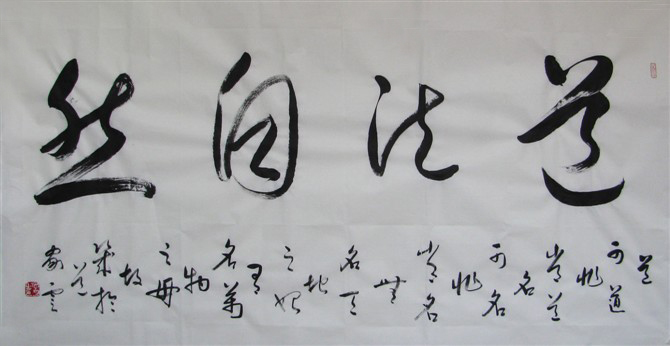 道法自然
道
可道
非
常道
名
可名
非
常名
無
名天
地
之始
有
名萬
物
之母
故